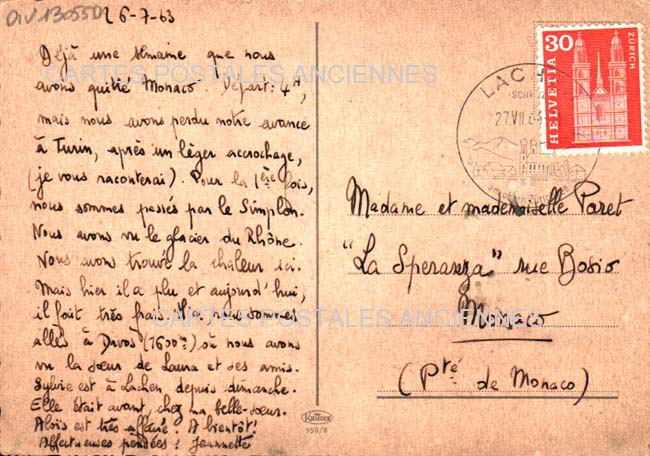 OIV 13055D
26-7-63
Déjà une semaine que nous
avons quitté Monaco. Départ: 4H,
mais nous avons perdu notre avance
à Turin, après un léger accrochage,
(je vous raconterai). Pour la 1ère fois,
nous sommes passés par le Simplon.
Nous avons vu le glacier du Rhône.
Nous avons trouvé la chaleur ici.
Mais hier il a plu et aujourd'hui,
il fait très frais. Hier nous sommes
allés à Davos (1600m) où nous avons
vu la sœur de Laura et ses amis.
Sylvie est à Lachen depuis dimanche.
Elle était avant chez sa belle-sœur.
Aloïs est très affairé. A bientôt!
Affectueuses pensées! Jeannette
CARTES POSTALES ANCIENNES
CARTES POSTALES ANCIENNES
HELVETIA
30
ZÜRICH
LACH
SCHWYZ
27.VII.63
am obern Zürichsee
Madame et mademoiselle Poret
"La Speranza" rue Bosio
Monaco
(Pté de Monaco)
KRÜGER
950/8